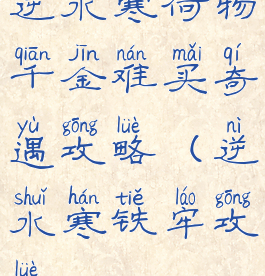 逆水寒荷物
qiān jīn nán mǎi qí
千金难买奇
yù gōng lüè nì
遇攻略（逆
shuǐ hán tiě láo gōng
水寒铁牢攻
lüè